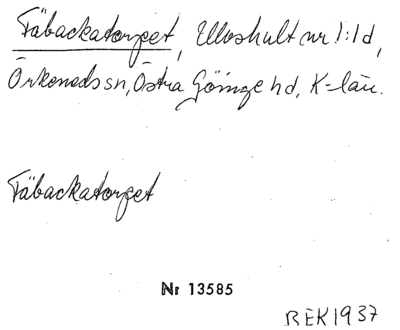 Fäbackatorpet, Ulvshult nr 1:1d,
Örkeneds sn, Östra Göinge hd, K-län.
Fäbackatorpet
Nr 13585
BEK1937